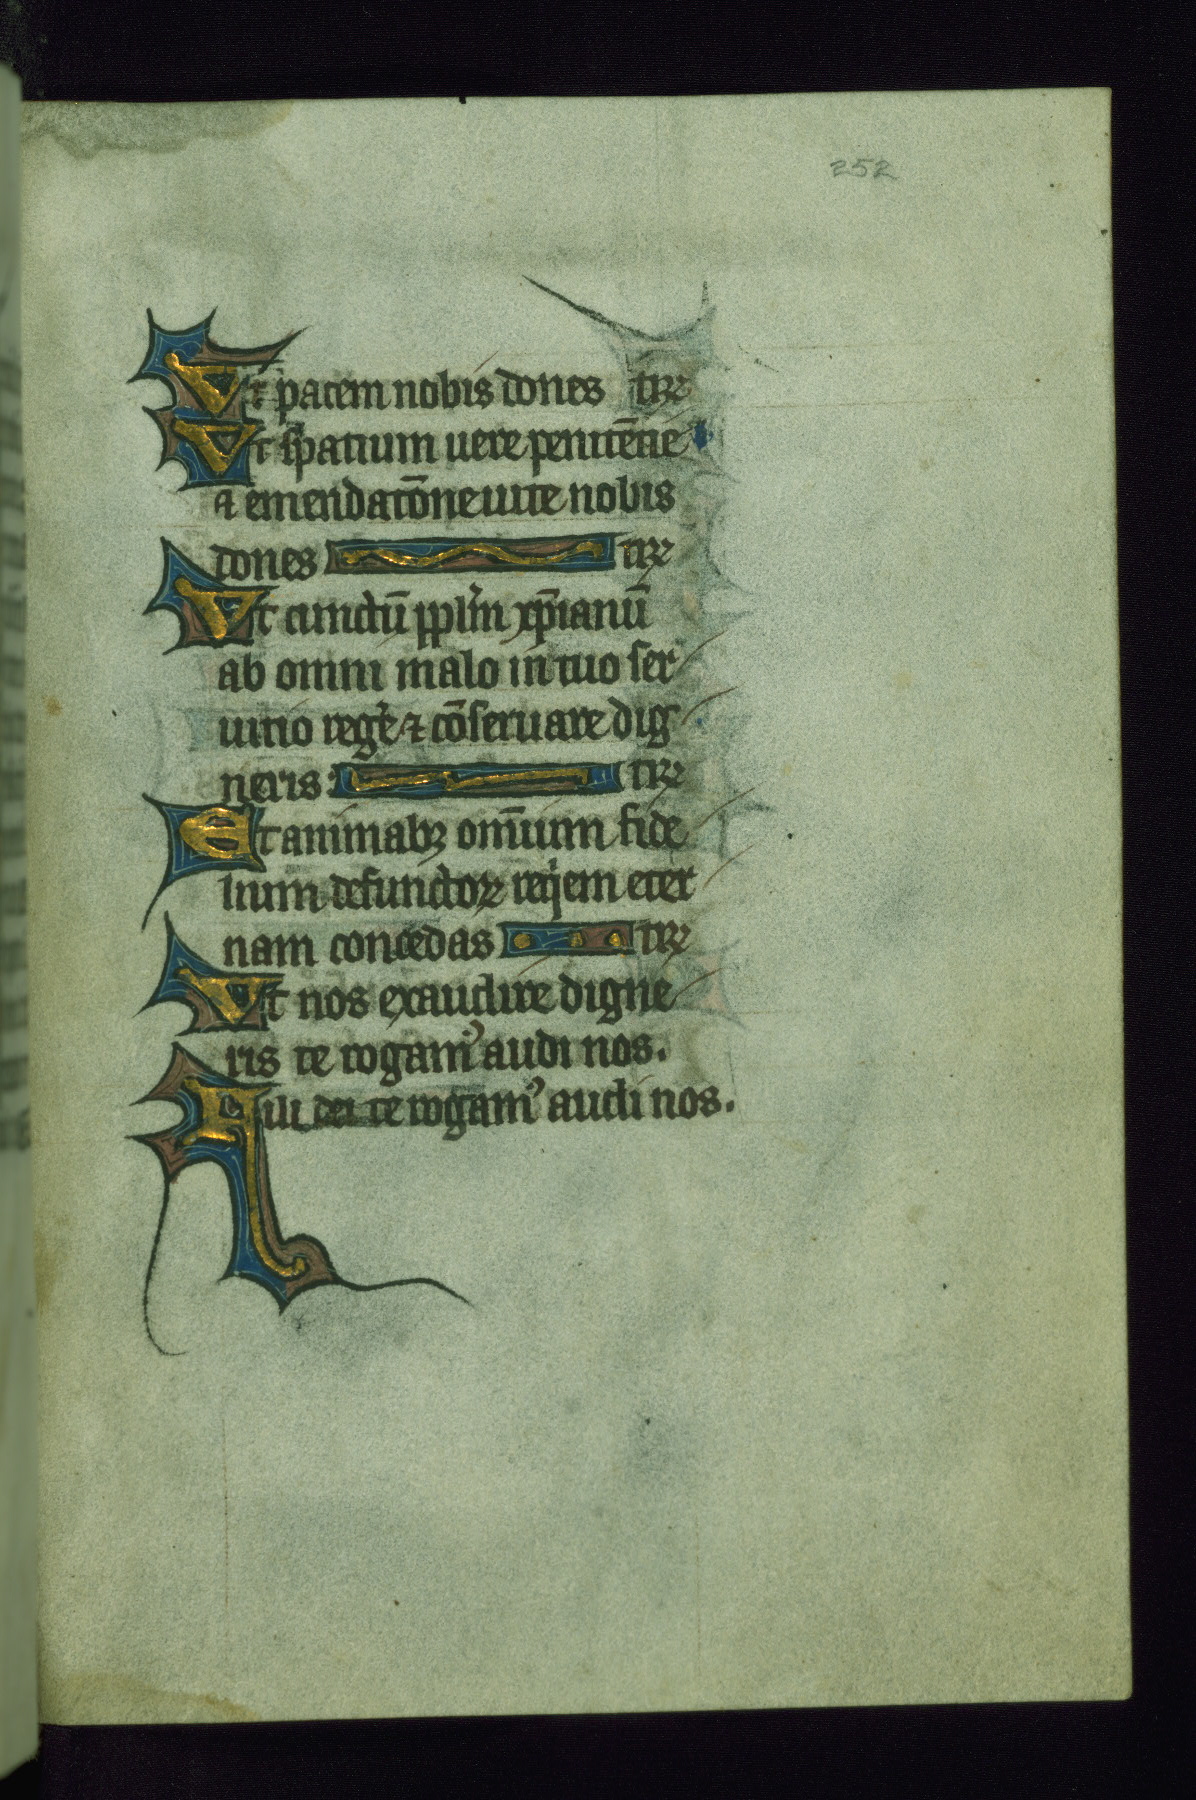 252
Ut pacem nobis dones tꝛ
Ut spatium uere penitẽtie
⁊ emendatõne uite nobis
dones tꝛ
Ut cunctũ pplm̃ xp̃ianũ
ab omni malo in tuo ser
uitio reg̃e ⁊ cõseruare dig
neris tꝛ
Et animabꝫ om̃ium fide
lium defunctoꝝ reqⁱem eter
nam concedas tꝛ
Ut nos exaudire digne
ris te rogamꝰ audi nos.
Fili dei te rogamꝰ audi nos.